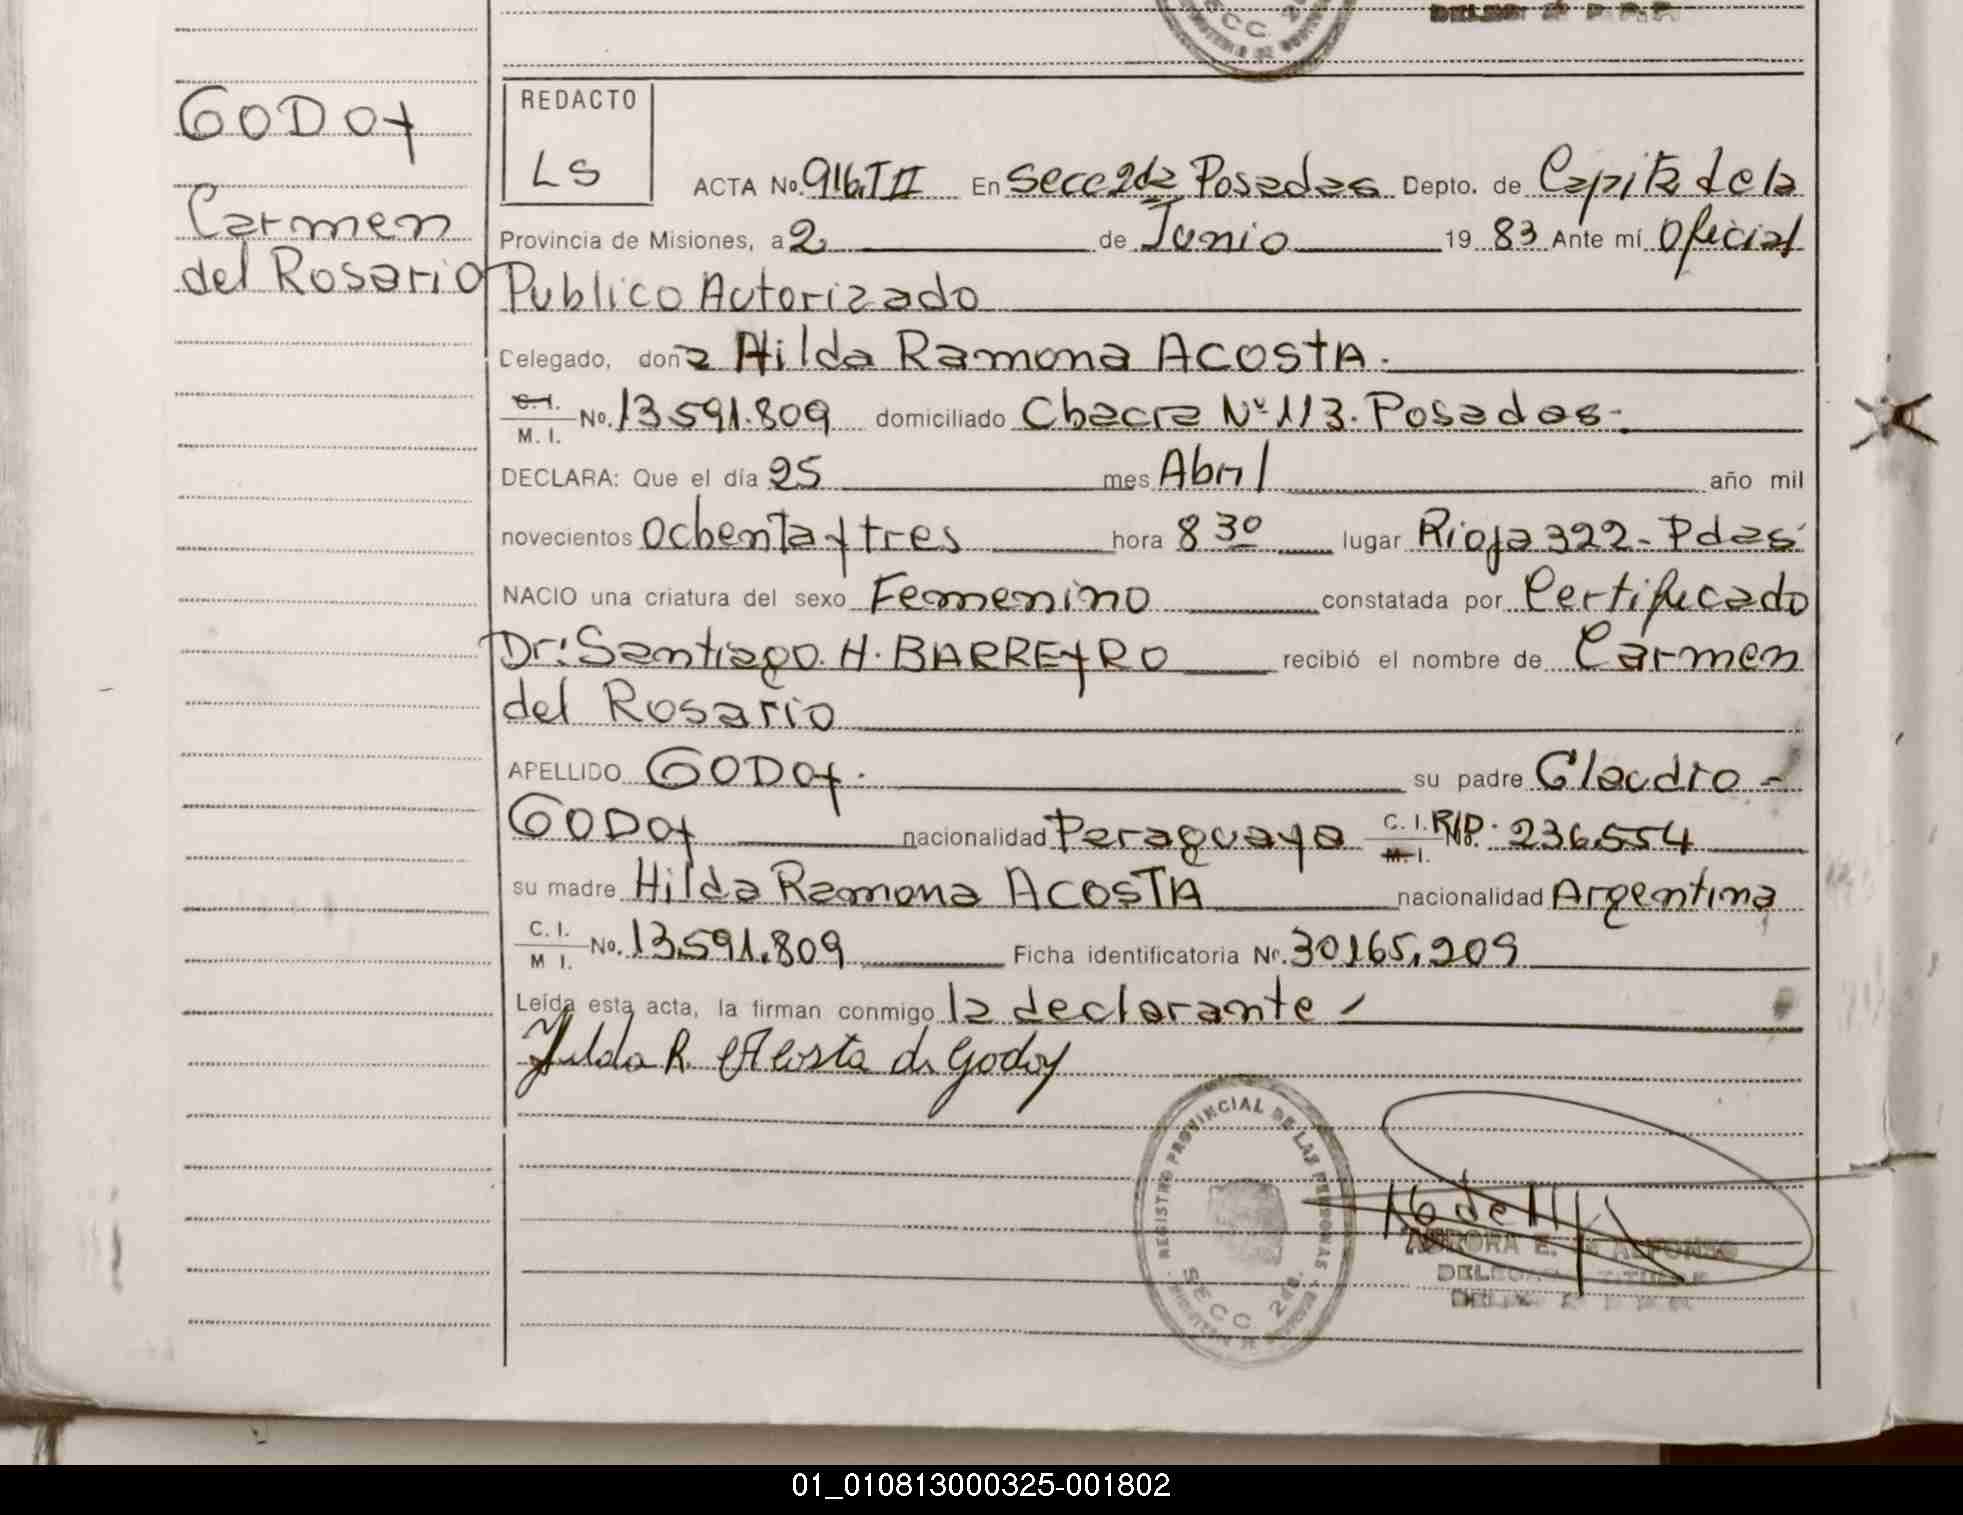 GODOY
Carmen
del Rosario
REDACTO
LS
ACTA No. 916.TII En Secc 2da Posadas Depto. de Capital de la
Provincia de Misiones, a 2 de Junio 19 83 Ante mí Oficial
Publico Autorizado
Delegado, dona Hilda Ramona ACOSTA.
C. I. M. I. No. 13.591.809 domiciliado Chacra Nº 113. Posadas.
DECLARA: Que el día 25 mes Abril año mil
novecientos ochenta y tres hora 8 30 lugar Rioja 322 - Pdas
NACIO una criatura del sexo Femenino constatada por Certificado
Dr: Santiago. H. BARREYRO recibió el nombre de Carmen
del Rosario
APELLIDO GODOY. su padre Claudio -
GODOY nacionalidad Paraguaya C. I. M. I. R/P. No. 236.554
su madre Hilda Ramona ACOSTA nacionalidad Argentina
C. I. M I. No. 13.591.809 Ficha identificatoria Nr. 30.165.209
Leída esta acta, la firman conmigo la declarante
Hilda R. Acosta de Godoy
REGISTRO PROVINCIAL DE LAS PERSONAS
SECC 2da.
AURORA E. de ALFONSO
DELEGADA TITULAR
01_010813000325-001802